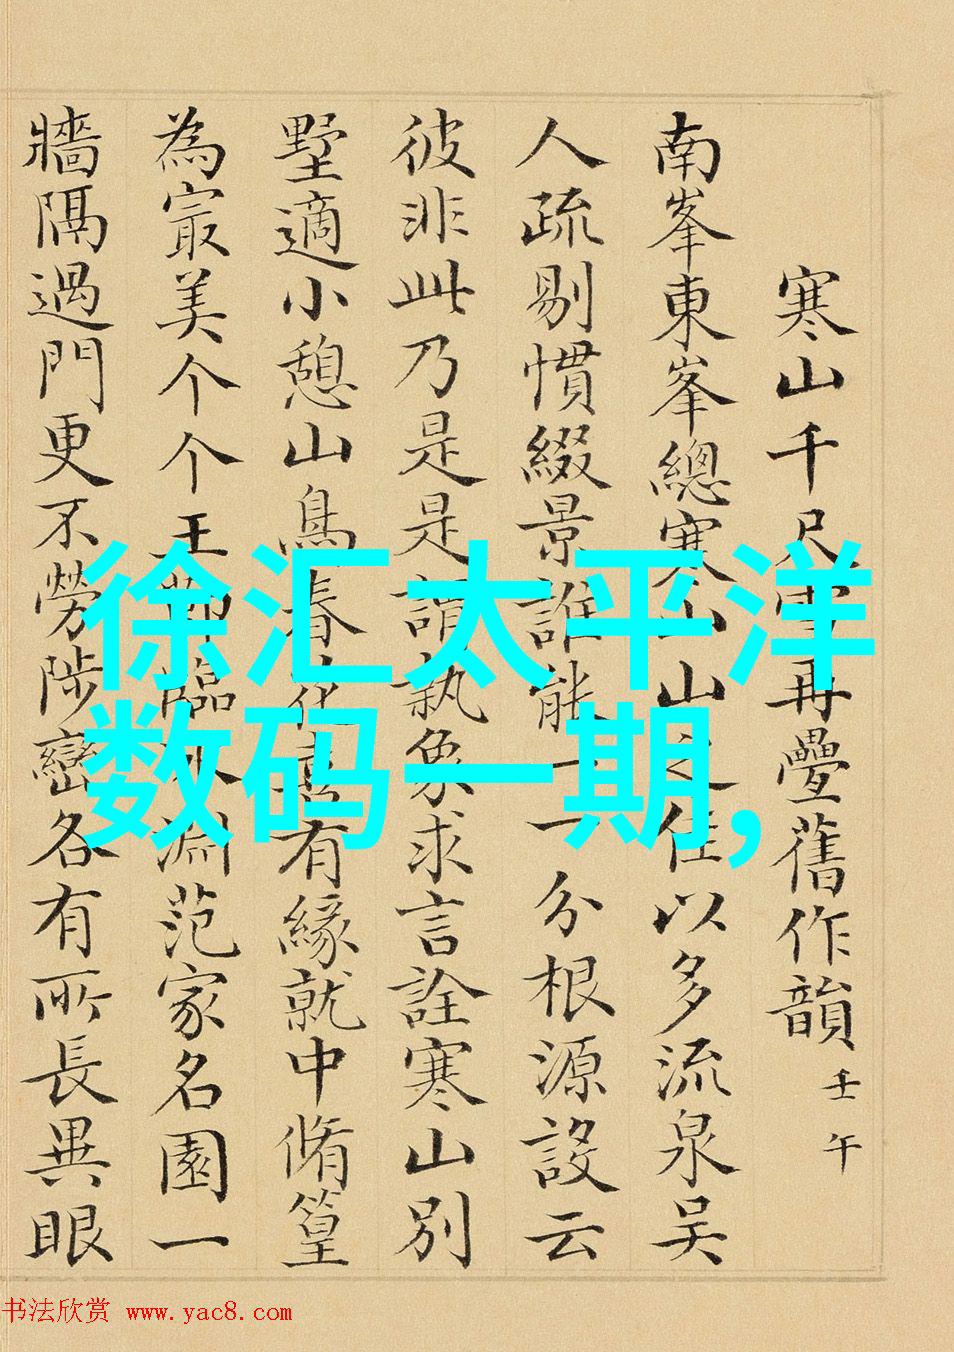 寒山千尺雪再疊舊作韻 壬午
南峯東峯總寒山山之佳以多流泉吴
人疏剔慣綴景誰能一一分根源設云
彼非此乃是是謂執象求言詮寒山別
墅適小憩山鳥春花喜有緣就中脩篁
為冣美个个玉 臨水淵范家名園一
牆隔過門更不勞陟巒各有所長異眼
徐汇太平洋
数码一期,
书法欣赏 www.yac8.com